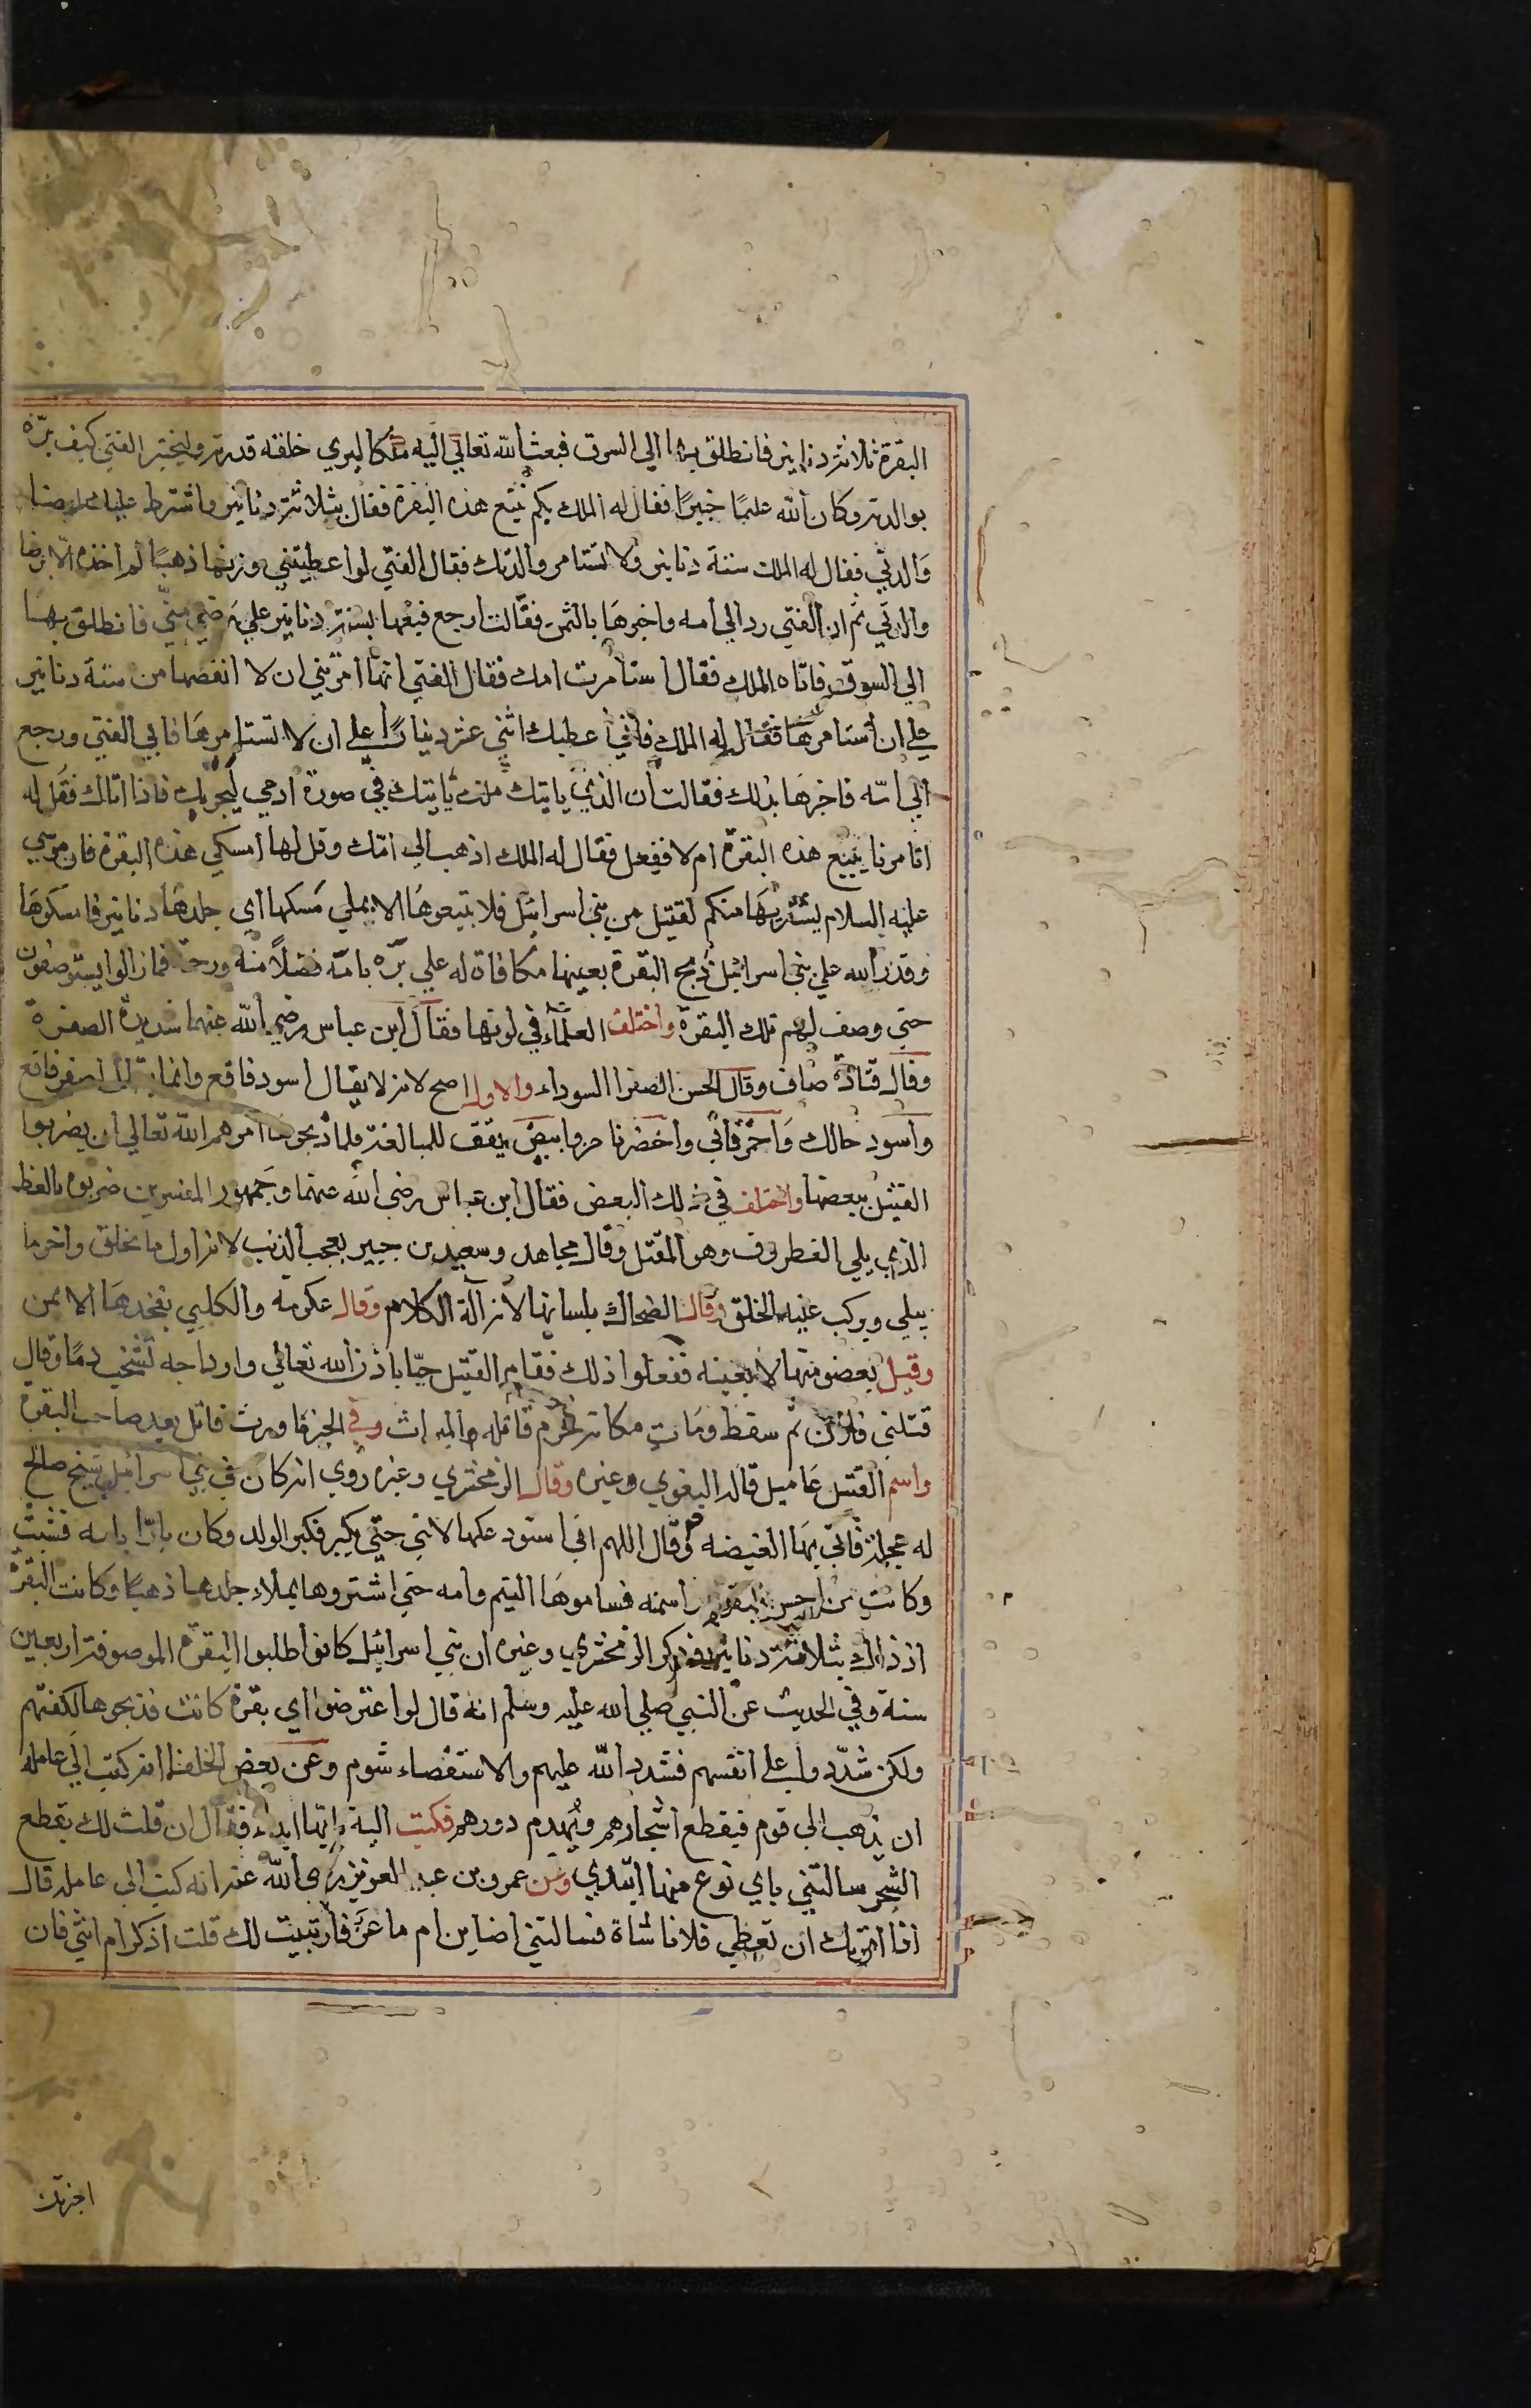 البقرة ثلاثة دنانير فانطلق بها الي السوق فبعث الله تعالي اليه ملكا ليري خلقه قدرته وليختبر الفتي كيف برّه
بوالدته وكان الله عليمًا خبيرًا فقال له الملك بكم تبيع هذه البقرة فقال بثلاثة دنانير واشترط عليك رضا
والدتي فقال له الملك ستة دنانير ولا تستامر والدتك فقال الفتي لو اعطيتني وزنها ذهبًا لم اخذه الا برضا
والدتي ثم ان الفتي رد الي امه واخبرها بالثمن فقالت ارجع فبعها بستة دنانير علي رضي منّي فانطلق بها
الي السوق فاتاه الملك فقال استامرت امك فقال الفتي انها امرتني ان لا انقصها من ستة دنانير
علي ان استامرها فقال له الملك فاني اعطيك اثني عشر دينارًا علي ان لا تستامرها فابي الفتي ورجع
الي امّه فاخبرها بذلك فقالت ان الذي ياتيك ملك ياتيك في صورة ادمي ليجربك فاذا اتاك فقل له
اتامرنا ببيع هذه البقرة ام لا ففعل فقال له الملك اذهب الي امّك وقل لها امسكي هذه البقرة فان موسي
عليه السلام يشتريها منكم لقتيل من بني اسرائيل فلا تبيعوها الا بملي مسكها اي جلدها دنانير فامسكوها
وقدر الله علي بني اسرائيل ذبح البقرة بعينها مكافاة له علي برّه بامّه فضلاً منه ورحمة فمازالوا يستوصفون
حتي وصف لهم تلك البقرة واختلف العلماء في لونها فقال ابن عباس رضي الله عنهما شديدة الصفرة
وقال قتادة صاف وقال الحسن الصفرا السوداء والاول اصح لانه لا يقال اسود فاقع وانما يقال اصفر فاقع
واسود حالك واحمر قاني واخضر نا ضر وابيض يقق للمبالغة فلما ذبحوها امرهم الله تعالي ان يضربوا
القتيل ببعضها واختلف في ذلك البعض فقال ابن عباس رضي الله عنهما وجمهور المفسرين ضربوه بالعظم
الذي يلي الغضروف وهو المقتل وقال مجاهد وسعيد بن جبير بعجب الذنب لانه اول ما يخلق واخر ما
يبلي ويركب عليه الخلق وقال الضحاك بلسانها لانه آلة الكلام وقال عكرمة والكلبي بفخدها الايمن
وقيل بعضو منها لا بعينه ففعلوا ذلك فقام القتيل حيّا باذن الله تعالي واوداجه تشخب دمًا وقال
قتلني فلان ثم سقط ومات مكانه فحرم قاتله الميراث وفي الخبر ما ورث قاتل بعد صاحب البقرة
واسم القتيل عاميل قاله البغوي وغيره وقال الزمخشري وغيره روي انه كان في بني اسرائيل شيخ صالح
له عجلة فاتي بها الغيضه وقال اللهم اني استودعكها لابني حتي يكبر فكبر الولد وكان بارّا بامه فشبت
وكانت من احسن البقر واسمنه فساموها اليتيم وامه حتي اشتروها بملاء جلدها ذهبًا وكانت البقرة
اذ ذاك بثلاثة دنانير وذكر الزمخشري وغيره ان بني اسرائيل كانوا طلبوا البقرة الموصوفة اربعين
سنة وفي الحديث عن النبي صلي الله عليه وسلم انه قال لو اعترضوا اي بقرة كانت فذبحوها لكفتهم
ولكن شدّدوا علي انفسهم فشدد الله عليهم والاستقصاء شوم وعن بعض الخلفا انه كتب الي عامله
ان يذهب الي قوم فيقطع اشجارهم ويهدم دورهم فكتب اليه بايّها ابداء فقال ان قلت لك بقطع
الشجر سالتني باي نوع منها ابتدي وعن عمر بن عبد العزيز رضي الله عنه انه كتب الي عامله قال
اذا امرتك ان تعطي فلانا شاة فسالتني اضاين ام ماعز فان بينت لك قلت اذكر ام انثي فان
اخبرتك